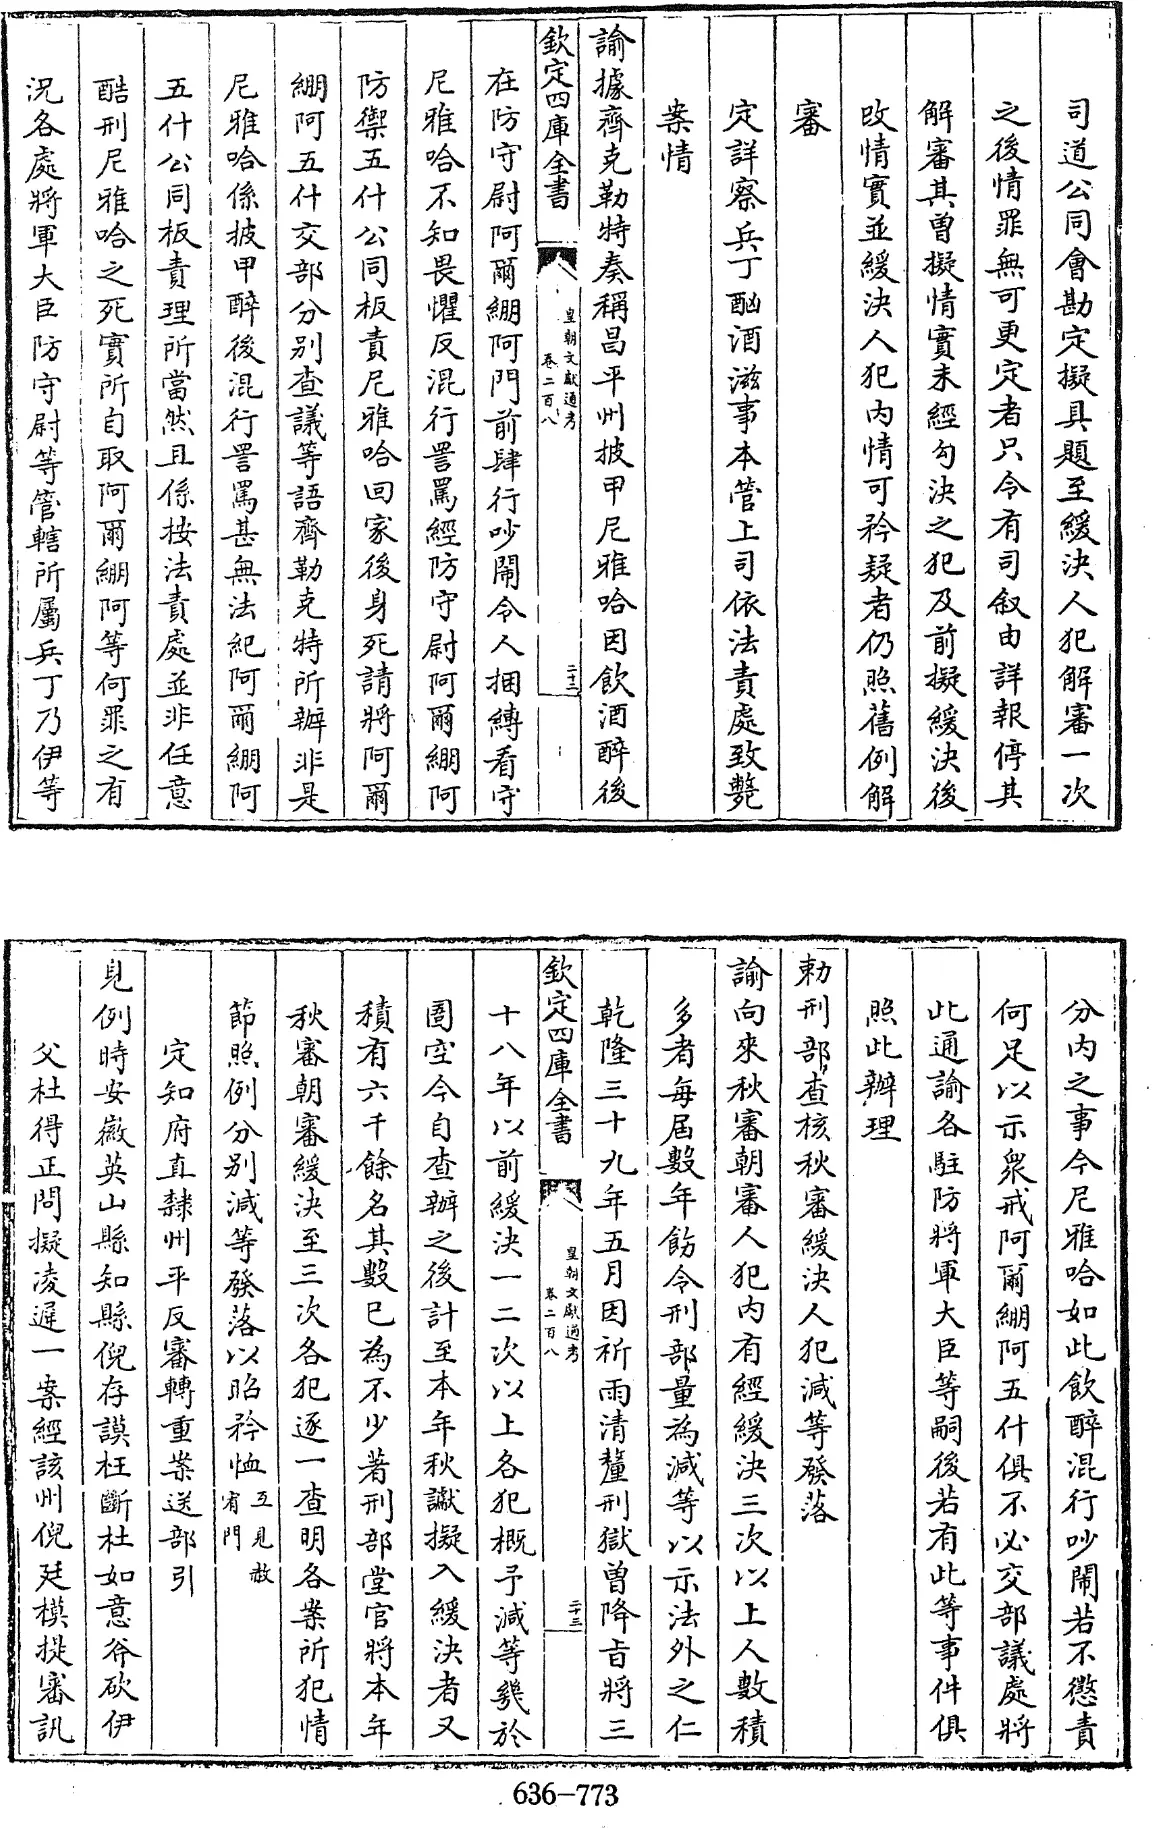 司道公同會勘定擬具題至緩決人犯解審一次
之後情罪無可更定者只令有司叙由詳報停其
解審其曾擬情實未經勾決之犯及前擬緩決後
改情實並緩決人犯内情可矜疑者仍照舊例解
審
定詳察兵丁酗酒滋事本管上司依法責處致斃
案情
諭據齊克勒特奏稱昌平州披甲尼雅哈因飲酒醉後
欽定四庫全書
皇朝文獻通考
卷二百八
二十二
在防守尉阿爾綳阿門前肆行吵鬧令人捆縛看守
尼雅哈不知畏懼反混行詈罵經防守尉阿爾綳阿
防禦五什公同板責尼雅哈回家後身死請將阿爾
綳阿五什交部分别查議等語齊勒克特所辦非是
尼雅哈係披甲醉後混行詈罵甚無法紀阿爾綳阿
五什公同板責理所當然且係按法責處並非任意
酷刑尼雅哈之死實所自取阿爾綳阿等何罪之有
況各處將軍大臣防守尉等管轄所屬兵丁乃伊等
分内之事今尼雅哈如此飲醉混行吵鬧若不懲責
何足以示衆戒阿爾綳阿五什俱不必交部議處將
此通諭各駐防將軍大臣等嗣後若有此等事件俱
照此辦理
勅刑部查核秋審緩決人犯減等發落
諭向來秋審朝審人犯内有經緩決三次以上人數積
多者每屆數年飭令刑部量為減等以示法外之仁
乾隆三十九年五月因祈雨清釐刑獄曾降旨將三
欽定四庫全書
皇朝文獻通考
卷二百八
二十三
十八年以前緩決一二次以上各犯概予減等幾於
圄空今自查辦之後計至本年秋讞擬入緩決者又
積有六千餘名其數已為不少著刑部堂官將本年
秋審朝審緩決至三次各犯逐一查明各案所犯情
節照例分别減等發落以昭矜恤互見赦宥門
定知府直隸州平反審轉重案送部引
見例時安徽英山縣知縣倪存謨枉斷杜如意斧砍伊
父杜得正問擬凌遲一案經該州倪廷模提審訊
636-773